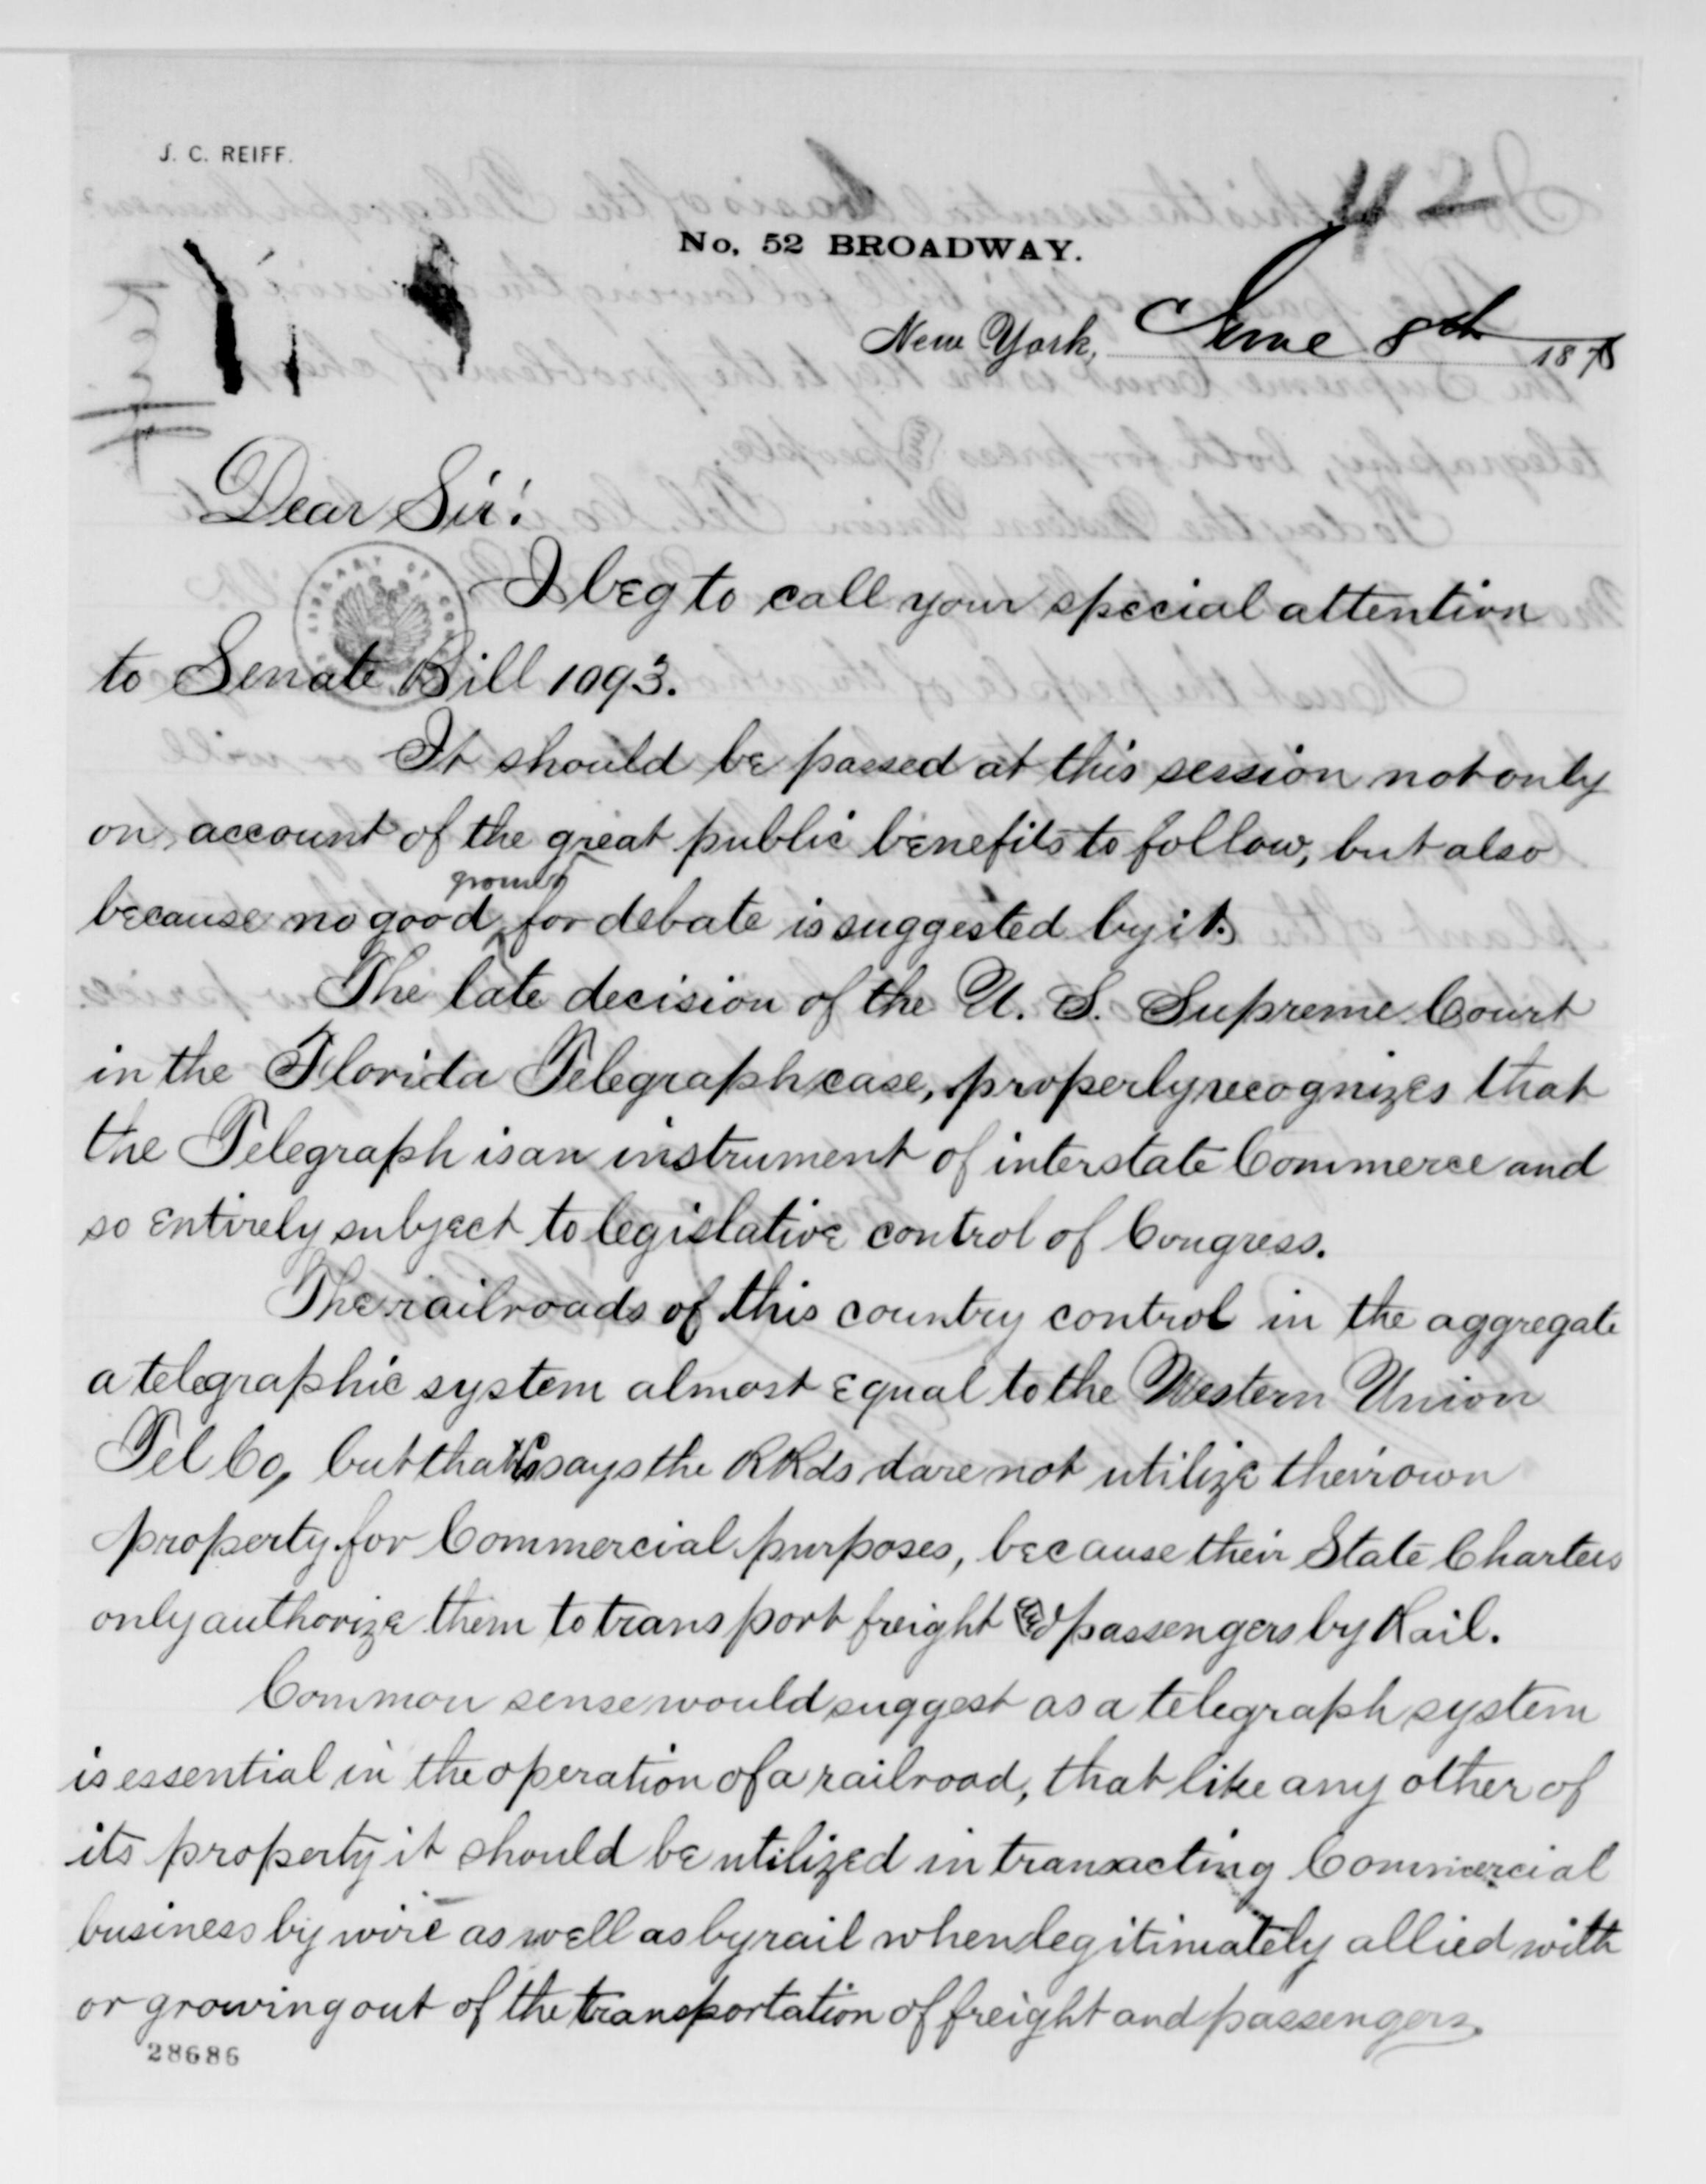 J. C. REIFF.
42
No. 52 BROADWAY.
New York, June 8th 1878
Dear Sir:
I beg to call your special attention
to Senate Bill 1093.
It should be passed at this session not only
on account of the great public benefits to follow, but also
because no good ground for debate is suggested by it.
The late decision of the U. S. Supreme Court
in the Florida Telegraph case, properly recognizes that
the Telegraph is an instrument of interstate Commerce and
so entirely subject to legislative control of Congress.
The railroads of this country control in the aggregate
a telegraphic system almost equal to the Western Union
Tel Co, but that Co says the RRds dare not utilize their own
property for Commercial purposes, because their State Charters
only authorize them to transport freight and passengers by Rail.
Common sense would suggest as a telegraph system
is essential in the operation of a railroad, that like any other of
its property it should be utilized in transacting Commercial
business by wire as well as by rail when legitimately allied with
or growing out of the transportation of freight and passengers.
28686